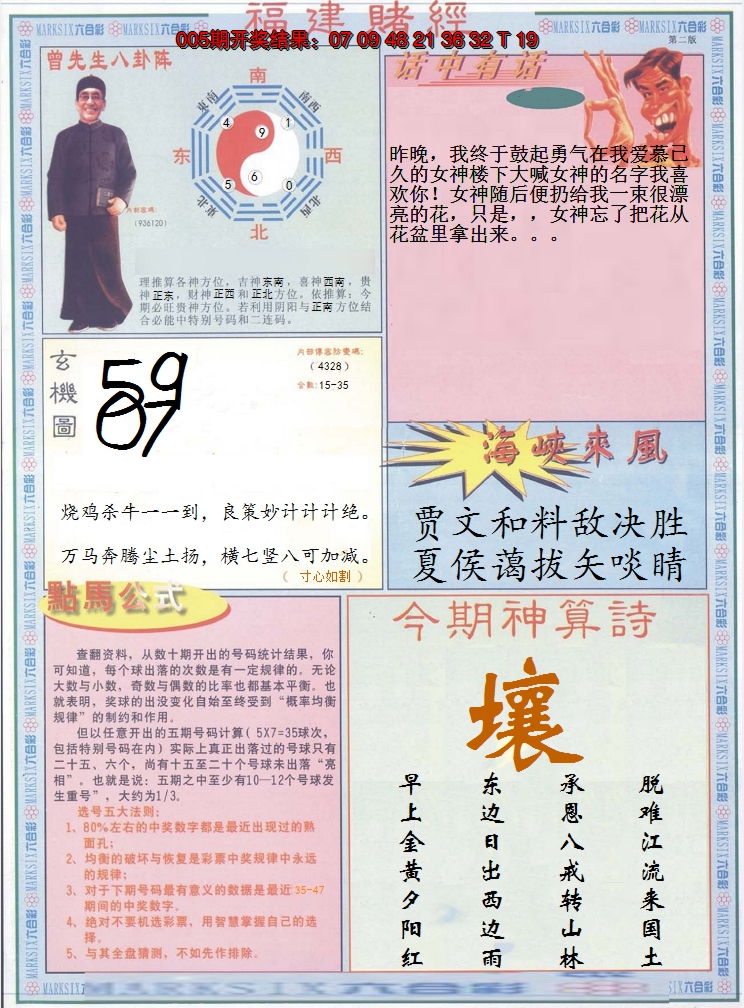 福建賭經
005期开奖结果：07 09 48 21 36 32 T 19
第二版
MARKSIX六合彩
曾先生八卦阵
南
東南
南西
东
西
東北
北西
北
4
9
1
5
6
0
內部密碼:
（936120）
理推算各神方位，吉神东南，喜神西南，贵
神正东，财神正西和正北方位。依推算：今
期必旺贵神方位。若利用阴阳与正南方位结
合必能中特别号码和二连码。
话中有话
昨晚，我终于鼓起勇气在我爱慕己
久的女神楼下大喊女神的名字我喜
欢你！女神随后便扔给我一束很漂
亮的花，只是，，女神忘了把花从
花盆里拿出来。。。
玄機圖
59
07
（4328）
合数:15-35
烧鸡杀牛一一到，良策妙计计计绝。
万马奔腾尘土扬，横七竖八可加减。
（ 寸心如割 ）
海峡來風
贾文和料敌决胜
夏侯蔼拔矢啖睛
點馬公式
查翻资料，从数十期开出的号码统计结果，你
可知道，每个球出落的次数是有一定规律的。无论
大数与小数，奇数与偶数的比率也都基本平衡。也
就表明，奖球的出没变化自始至终受到“概率均衡
规律”的制约和作用。
但以任意开出的五期号码计算（5X7=35球次，
包括特别号码在内）实际上真正出落过的号球只有
二十五、六个，尚有十五至二十个号球未出落“亮
相”。也就是说：五期之中至少有10—12个号球发
生重号”，大约为1/3。
选号五大法则：
1、80%左右的中奖数字都是最近出现过的熟
面孔；
2、均衡的破坏与恢复是彩票中奖规律中永远
的规律；
3、对于下期号码最有意义的数据是最近35-47
期间的中奖数字。
4、绝对不要机选彩票，用智慧掌握自己的选
择。
5、与其全盘猜测，不如先作排除。
今期神算詩
壤
脱难江流来国土
承恩八戒转山林
东边日出西边雨
早上金黄夕阳红